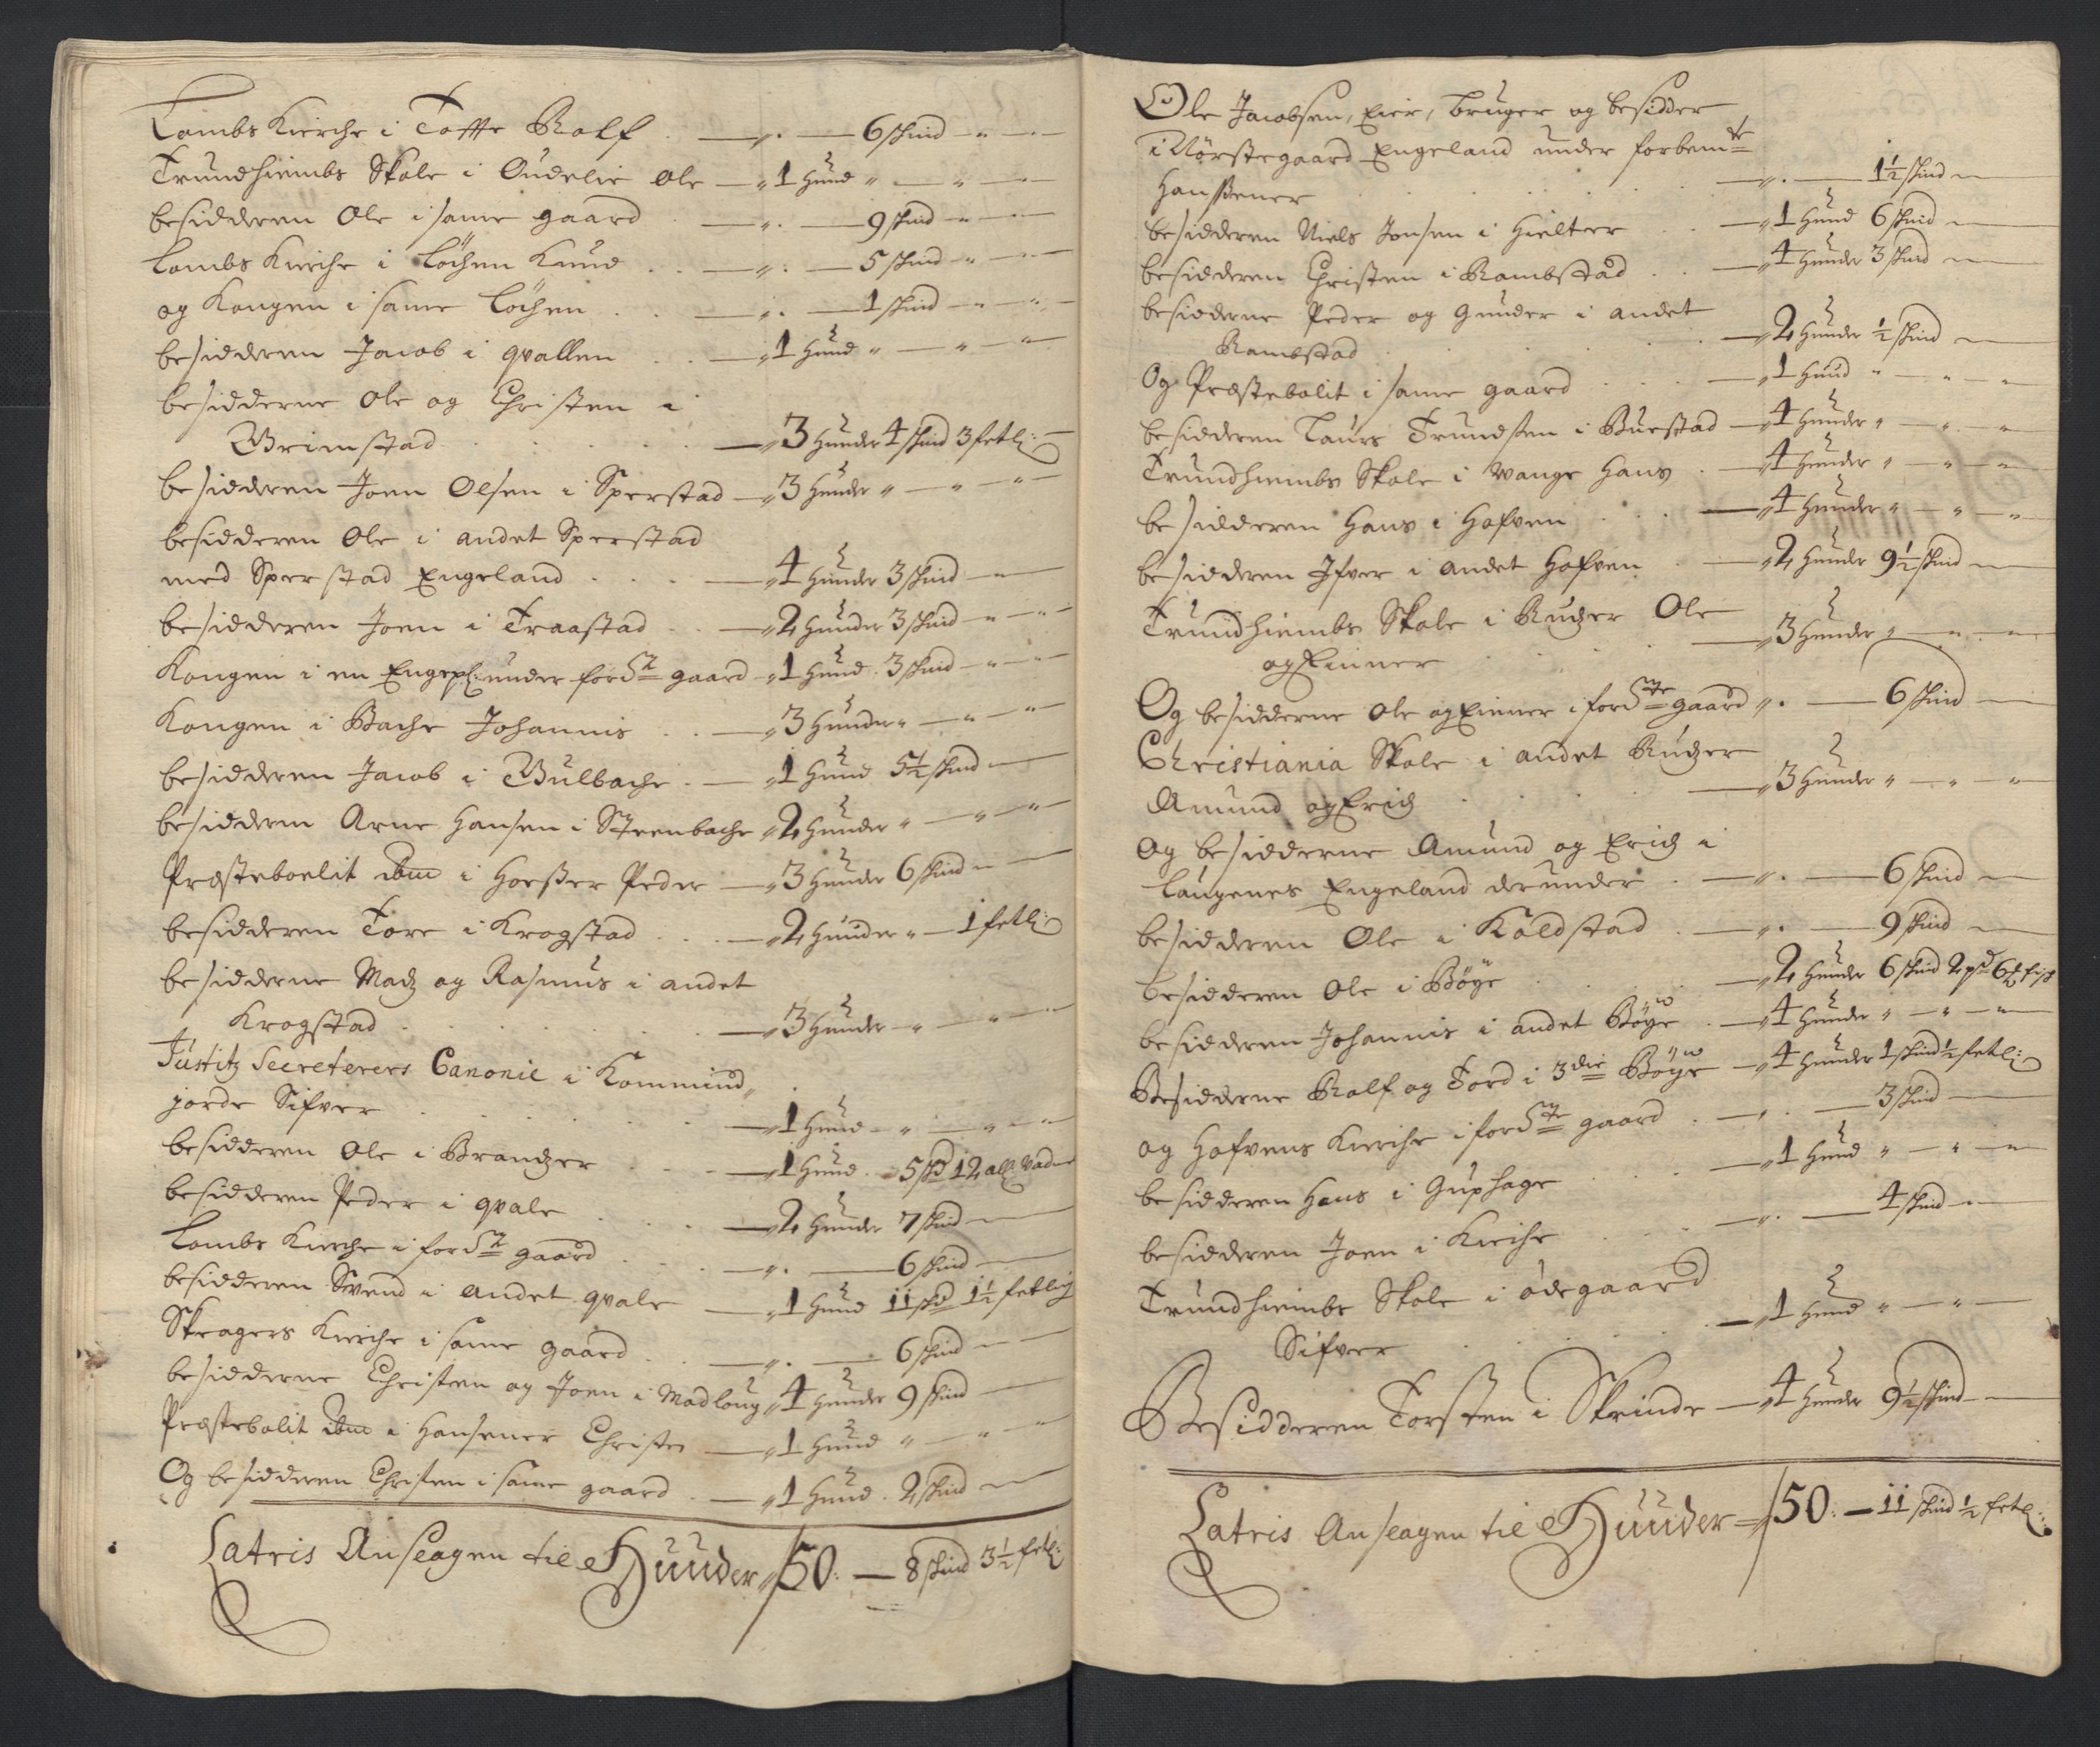 Lombs Kirche i Toffte Rolf — „ . — 6 skind — „ —
Trundhiembs Skole i Oudelie Ole — „ 1 Hund „ — „ —
besidderen Ole i same gaard . — „ . — 9 skind — „ —
Lombs Kirche i Löchen Knud . . — „ . — 5 skind — „ —
og Kongen i same Löchen . . — „ . — 1 skind — „ —
besidderen Jacob i qvallen . . — „ 1 Hund „ — „ —
besidderne Ole og Christen i
Grimstad . . . — „ 3 Hunder 4 skind 3 fetl:
besidderen Joen Olsen i Sperstad — „ 3 Hunder „ — „ —
besidderen Ole i andet Sperstad
med Sperstad Engeland . . . — „ 4 Hunder 3 skind —
besidderen Joen i Traastad . . — „ 2 Hunder 3 skind — „ —
Kongen i en Engepl: under fordne gaard — „ 1 Hund . 3 skind — „ —
Kongen i Bache Johannis . . — „ 3 Hunder „ — „ —
besidderen Jacob i Bulbache . — „ 1 Hund 5½ skind —
besidderen Arne Hansen i Steenbache „ 2 Hunder „ — „ —
Præsteboelit ibm i Horster Peder — „ 3 Hunder 6 skind — „ —
besidderen Tore i Krogstad . . . — „ 2 Hunder „ — 1 fetl:
besidderne Madz og Rasmus i andet
Krogstad . . . — „ 3 Hunder — „ — „ —
Justitz Secreterers Canonie i Kommind„
jorde Sifver . . . — „ 1 Hund — „ — „ —
besidderen Ole i Brandzer . . . — „ 1 Hund . 5 skd 12 all: Vadm
besidderen Peder i qvale . . . — „ 2 Hunder 7 skind —
Lombs Kirche i fordne gaard . . . — „ . — 6 skind —
besidderen Svend i andet qvale — „ 1 Hund 11 skd 1½ fetling
Skeagers Kirche i same gaard . . — „ . — 6 skind —
besidderne Christen og Joen i Modloug „ 4 Hunder 9 skind —
Præstebolit ibm i Hansener Christen — „ 1 Hund „ — „ —
Og besidderen Christen i same gaard . — „ 1 Hund . 2 skind —
Latris Anseagen til Hunder „ 50: — 8 skind 3½ fetl:
Ole Jacobsen, Eier, bruger og besidder
i Nörstegaard Engeland under forbemte
Hanssener . . . — „ . — 1½ skind —
besidderen Niels Jonsen i Hielter . . — „ 1 Hund 6 skind —
besidderen Christen i Rambstad . . — „ 4 Hunder 3 skind —
besidderne Peder og Gunder i andet
Rambstad . . . — „ 2 Hunder ½ skind —
Og Præstebolit i same gaard . . . — „ 1 Hund „ — „ —
besidderen Laurs Trundsen i Burstad — „ 4 Hunder „ — „ —
Trundhiembs Skole i Wange Hans . — „ 4 Hunder „ — „ —
besidderen Hans i Hofven . . . — „ 4 Hunder „ — „ —
besidderen Ifver i andet Hofven . — „ 2 Hunder 9½ skind —
Trundhiembs Skole i Rudzer Ole
og Einner . . . — „ 3 Hunder „ — „ —
Og besidderne Ole og Einner i fordnte gaard „ . — 6 skind —
Christiania Skole i andet Rudzer
Amund og Erich . . . — „ 3 Hunder „ — „ —
og besidderne Amund og Erich i
Laugenes Engeland derunder . — „ . — 6 skind —
besidderen Ole i Koldstad . — „ . — 9 skind —
besidderen Ole i Böye . . . — „ 2 Hunder 6 skind 2 pd 6 ₰ fisk
besidderen Johannis i andet Böye . — „ 4 Hunder „ — „ —
Besidderne Rolf og Tord i 3die Böye — „ 4 Hunder 1 skind ½ fetl:
og Hofvens Kirche i fordnte gaard . — „ . — 3 skind —
besidderen Hans i Guphage . . . — „ 1 Hund „ — „ —
besidderen Joen i Kirche . . . — „ . — 4 skind —
Trundhiembs Skole i ödegaard
Sifver . . . — „ 1 Hund „ — „ —
Besidderen Torsten i Skrinde — „ 4 Hunder 9½ skind —
Latris Anseagen til Hunder — 50: — 11 skind ½ fetl: